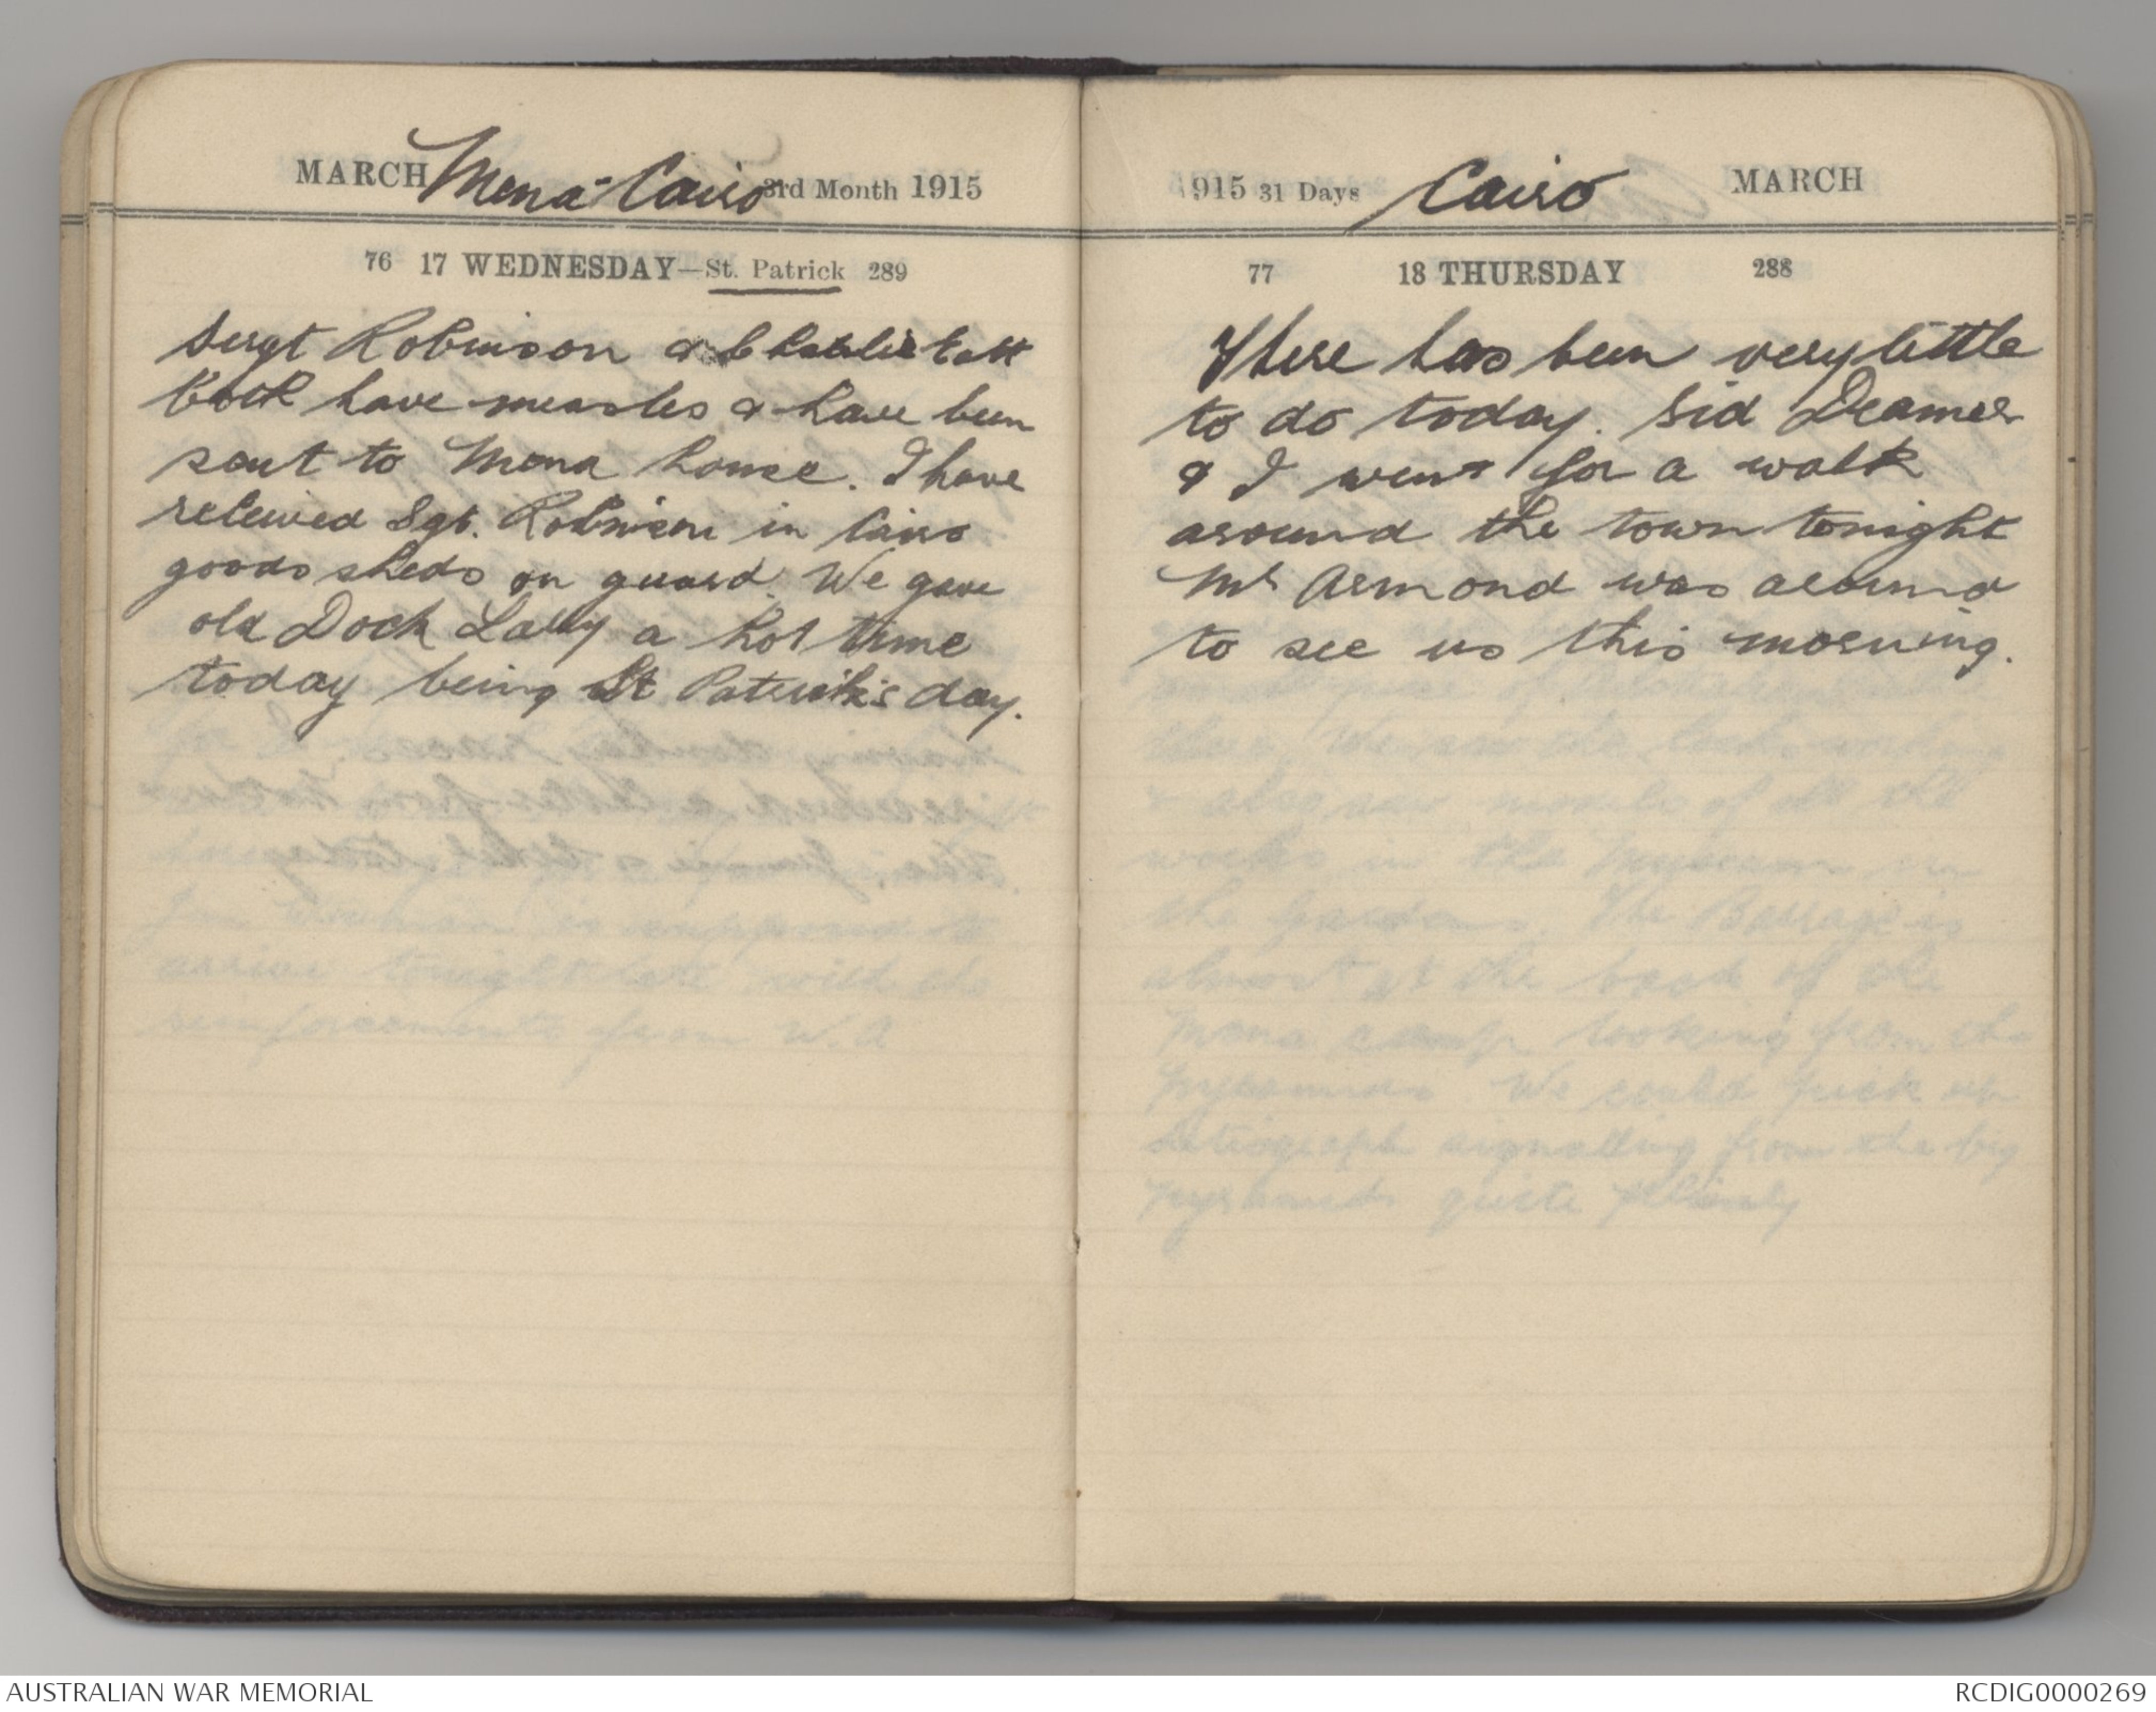 MARCH Mena-Cairo 3rd Month 1915
76 17 WEDNESDAY—St. Patrick 289
Sergt Robinson & Charlie
have measles & have been
sent to Mena house. I have
releived Sgt. Robinson in Cairo
goods sheds on guard. We gave
old Dock Lally a hot time
today being St Patrick's day.
1915 31 Days Cairo MARCH
77 18 THURSDAY 288
There has been very little
to do today. Sid Deamer
& I went for a walk
around the town tonight
Mr Armond was around
to see us this morning.
AUSTRALIAN WAR MEMORIAL
RCDIG0000269